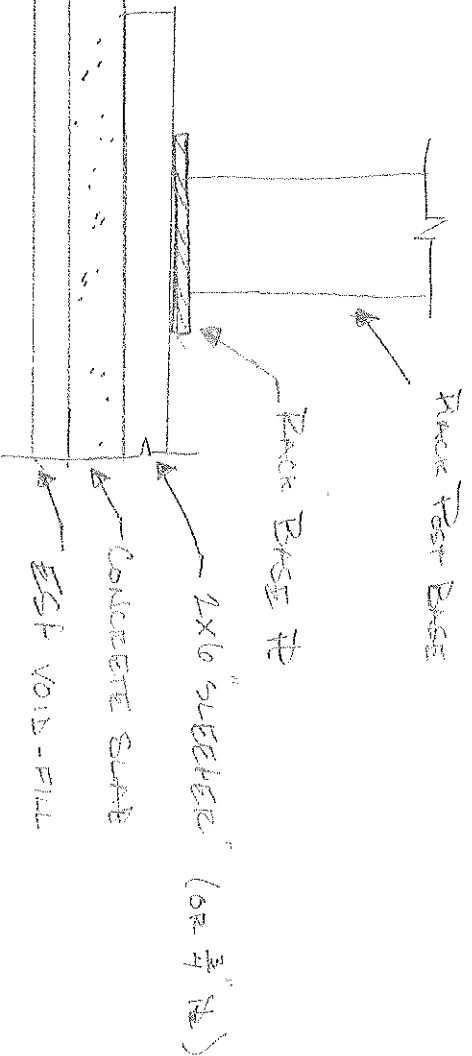 RACK POST BASE
RACK BASE ⅊
2X6 "SLEEPER" (OR ¾" ⅊)
CONCRETE SLAB
ESP VOID-FILL